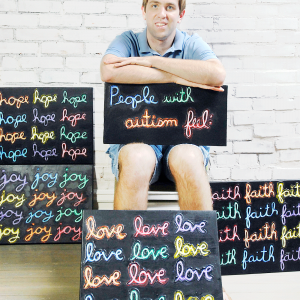 hope hope hope
hope hope hope
hope hope hope
hope hope hope
People with
autism feel:
joy joy joy
joy joy joy
joy joy joy
joy joy joy
faith faith faith
faith faith faith
faith faith faith
faith faith faith
love love love
love love love
love love love